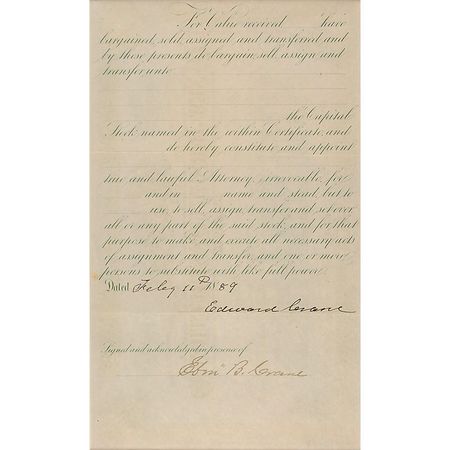 For Value received have
bargained, sold, assigned and transferred and
by these presents do bargain, sell, assign and
transfer unto
the Capital
Stock named in the within Certificate, and
do hereby constitute and appoint
true and lawful Attorney, irrevocable, for
and in name and stead, but to
use, to sell, assign, transfer and set over
all or any part of the said stock, and for that
purpose to make and execute all necessary acts
of assignment and transfer and one or more
persons to substitute with like full power.
Dated Feby 11th 1889
Edward Crane
Signed and acknowledged in presence of
Ebnr B. Crane